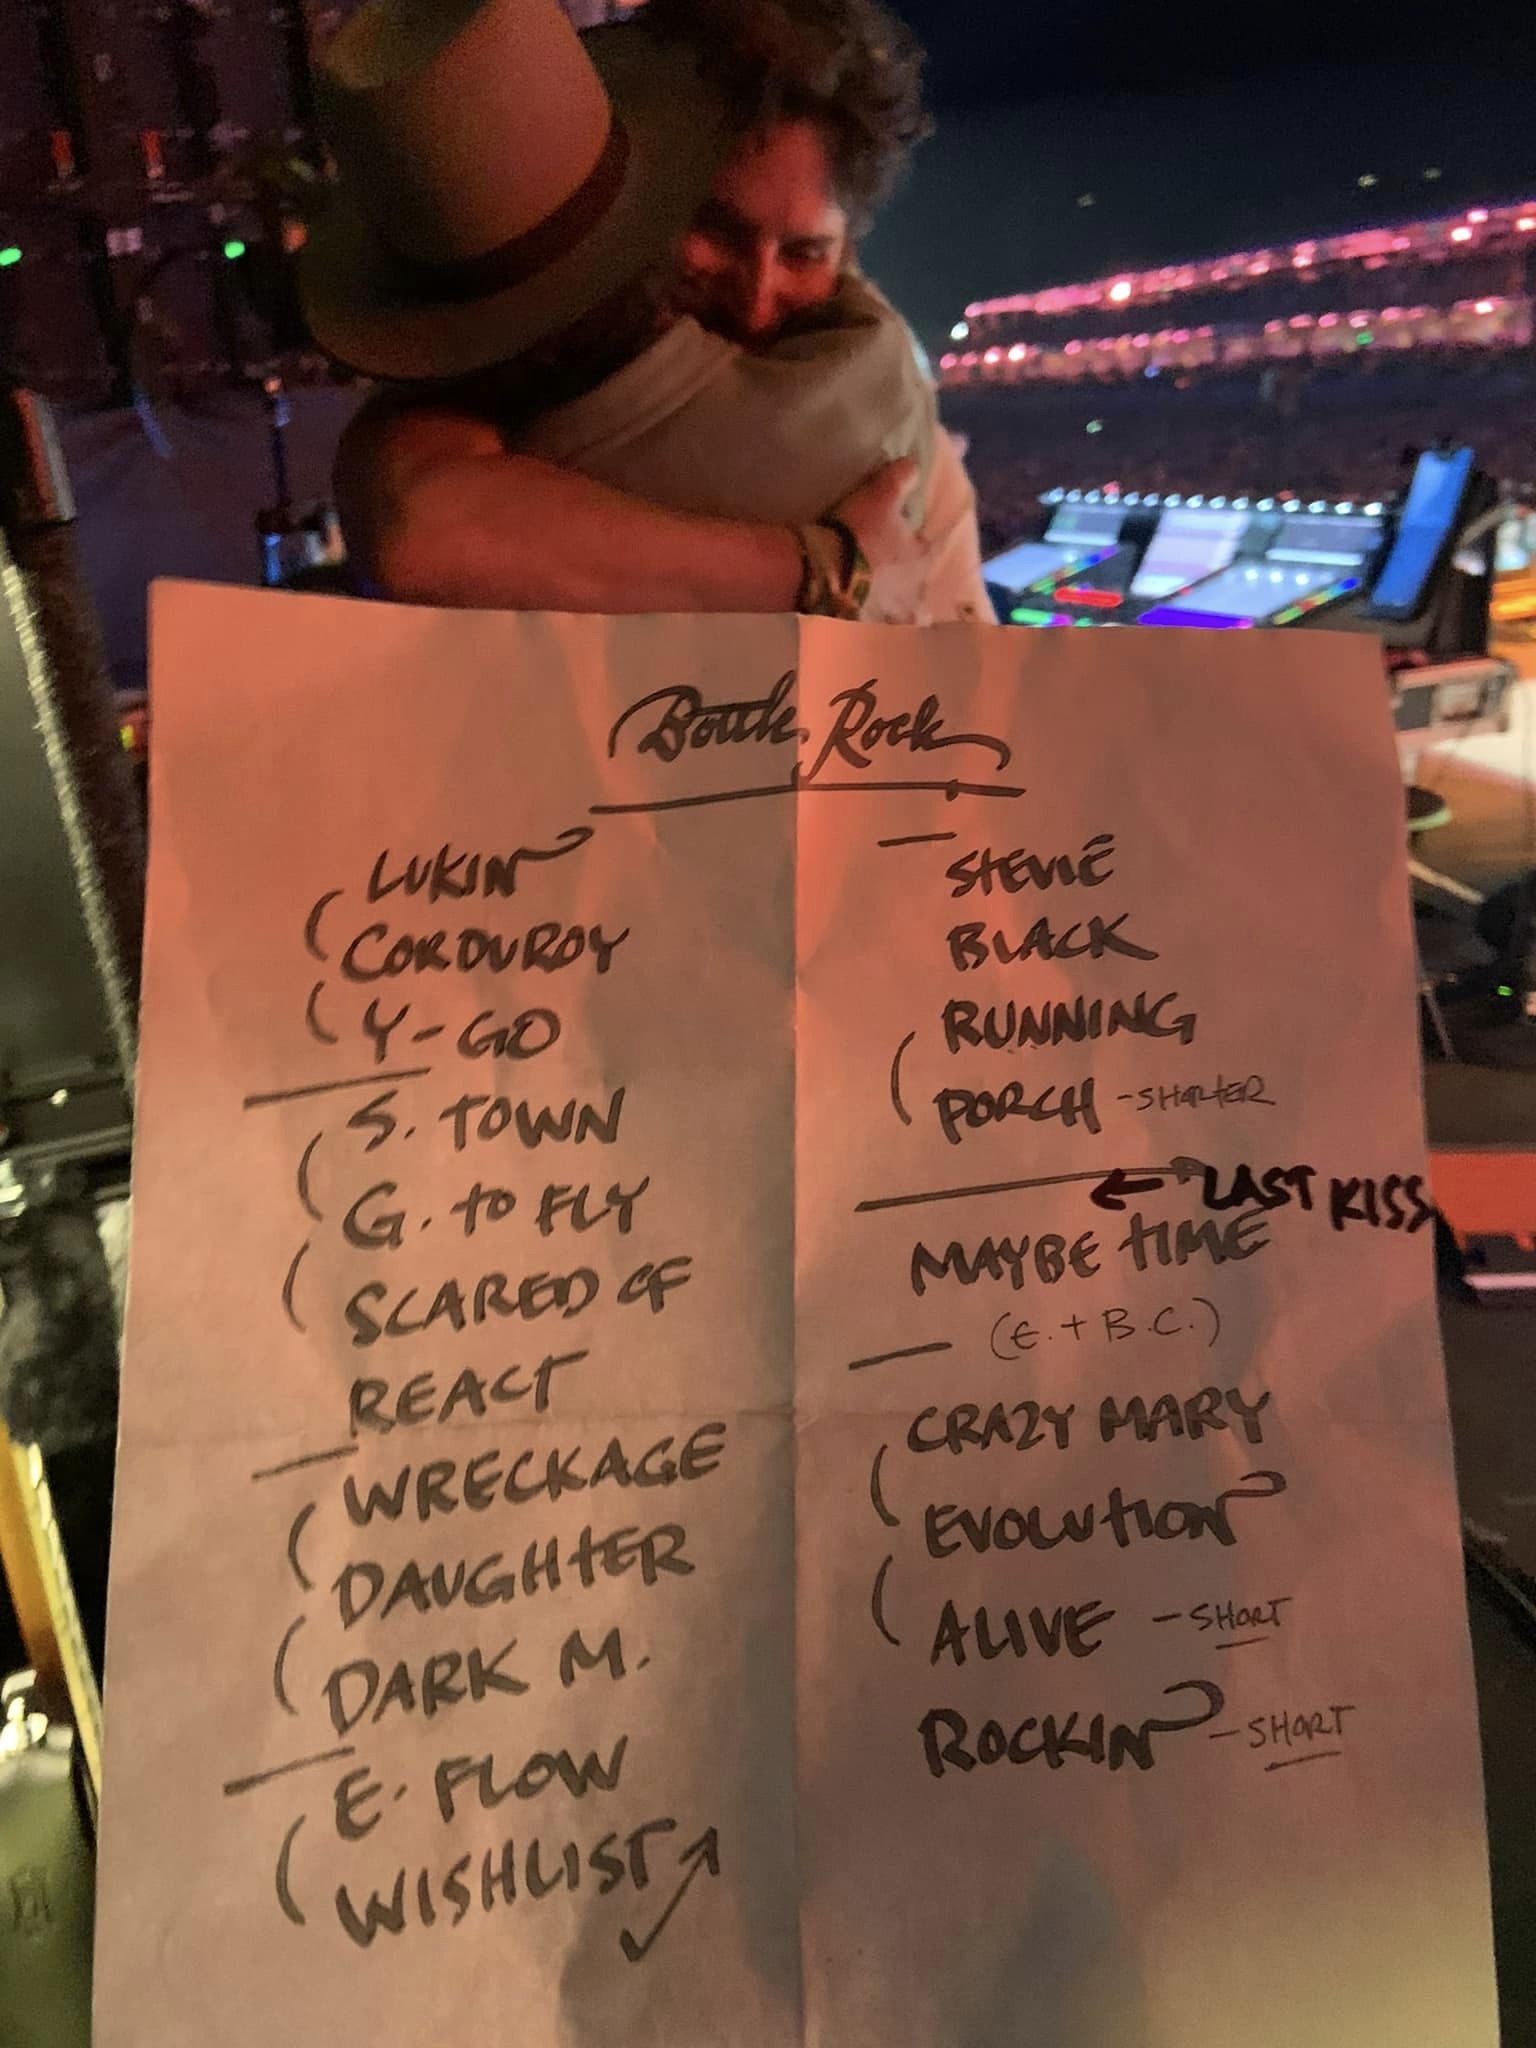 Bottle Rock
LUKIN
CORDUROY
Y-GO
S. TOWN
G. TO FLY
SCARED OF
REACT
WRECKAGE
DAUGHTER
DARK M.
E. FLOW
WISHLIST
STEVIE
BLACK
RUNNING
PORCH - SHORTER
← LAST KISS
MAYBE TIME
(E. + B.C.)
CRAZY MARY
EVOLUTION
ALIVE - SHORT
ROCKIN - SHORT